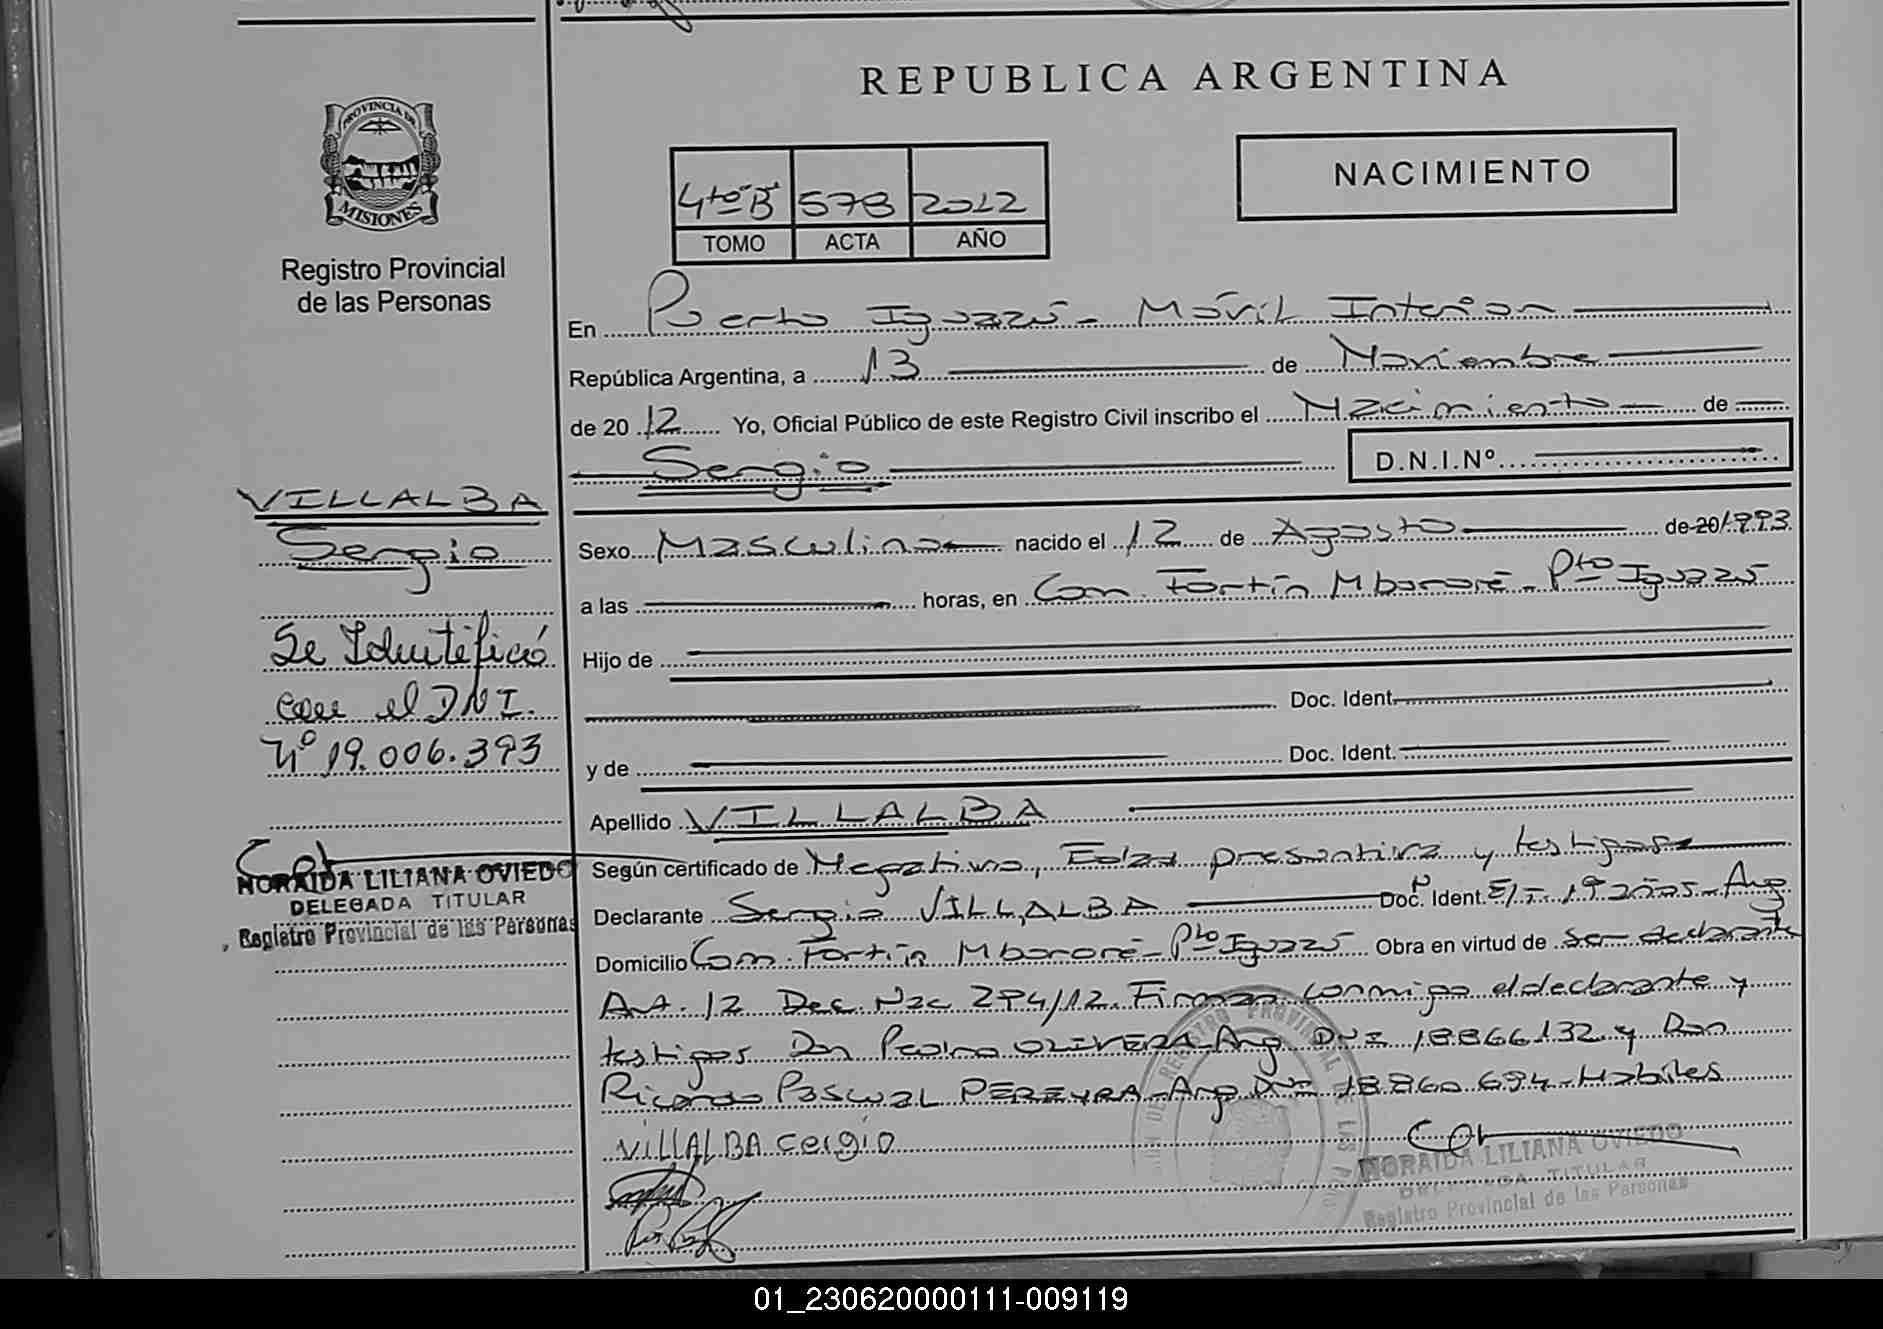 REPUBLICA ARGENTINA
PROVINCIA DE
MISIONES
Registro Provincial
de las Personas
4to "B" 578 2012
TOMO ACTA AÑO
NACIMIENTO
En Puerto Iguazú - Móvil Interior
República Argentina, a 13 de Noviembre
de 20 12 Yo, Oficial Público de este Registro Civil inscribo el Nacimiento de
Sergio D.N.I.Nº
Sexo Masculino nacido el 12 de Agosto de 20 1993
a las horas, en Com. Fortín Mbororé - Pto Iguazú
Hijo de
Doc. Ident.
y de Doc. Ident.
Apellido VILLALBA
Según certificado de Negativo, Edad presuntiva y testigos
Declarante Sergio VILLALBA Doc. Ident. Arg
Domicilio Com. Fortín Mbororé - Pto Iguazú Obra en virtud de ser declarante
Art. 12 Dec. Nac 294/12. Firman conmigo el declarante y
testigos Don Pedro OLIVERA Arg DNI 18866132 y Don
Ricardo Pascual PEREYRA - Arg DNI 18.860.694 - Habiles
VillALBA cergio
NORAIDA LILIANA OVIEDO
DELEGADA TITULAR
Registro Provincial de las Personas
VILLALBA
Sergio
Se Identificó
con el DNI.
Nº 19.006.393
NORAIDA LILIANA OVIEDO
DELEGADA TITULAR
Registro Provincial de las Personas
01_230620000111-009119